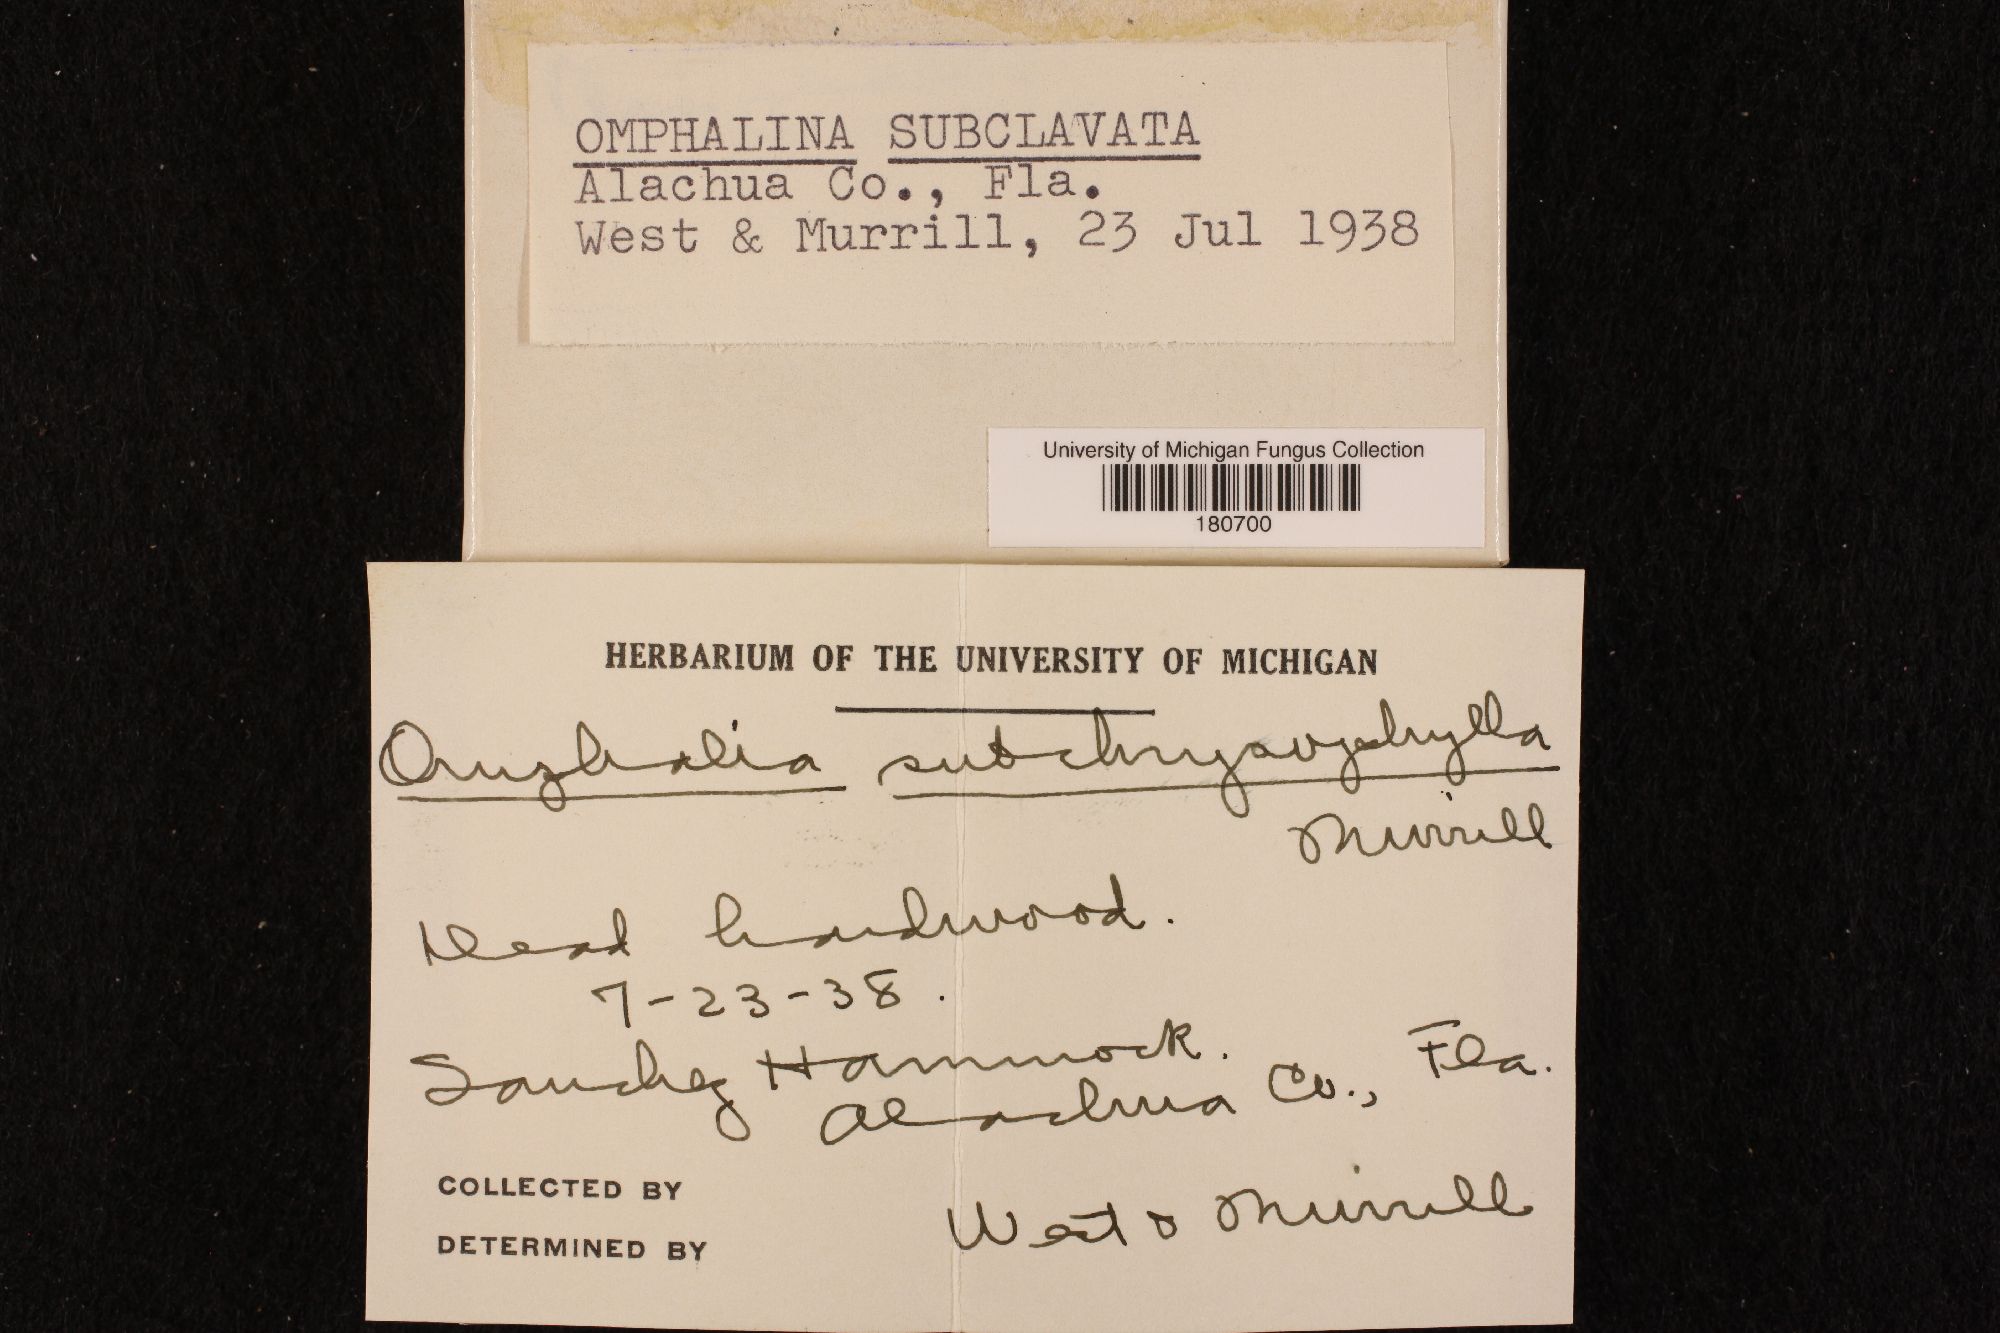 OMPHALINA SUBCLAVATA
Alachua Co., Fla.
West & Murrill, 23 Jul 1938
University of Michigan Fungus Collection
180700
HERBARIUM OF THE UNIVERSITY OF MICHIGAN
Omphalia subchrysophylla
Murrill
Dead hardwood.
7-23-38.
Sanchez Hammock.
Alachua Co., Fla.
COLLECTED BY
West & Murrill
DETERMINED BY